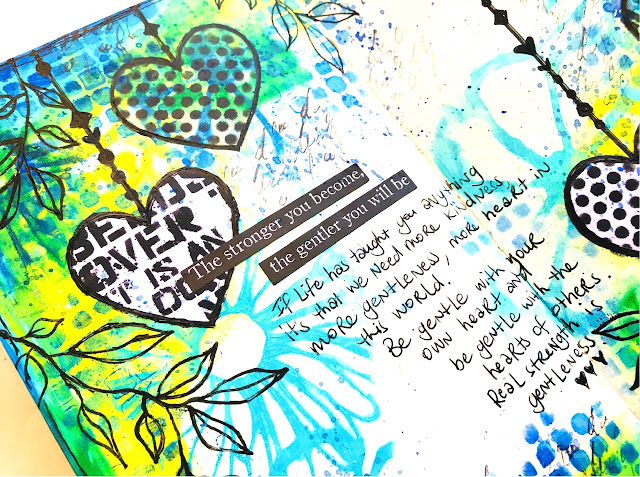 BE
OVER
IT IS AN
The stronger you become,
the gentler you will be
If Life has taught you anything
it's that we need more kindness
more gentleness, more heart in
this world.
Be gentle with your
own heart and
be gentle with the
hearts of others.
Real strength is
gentleness